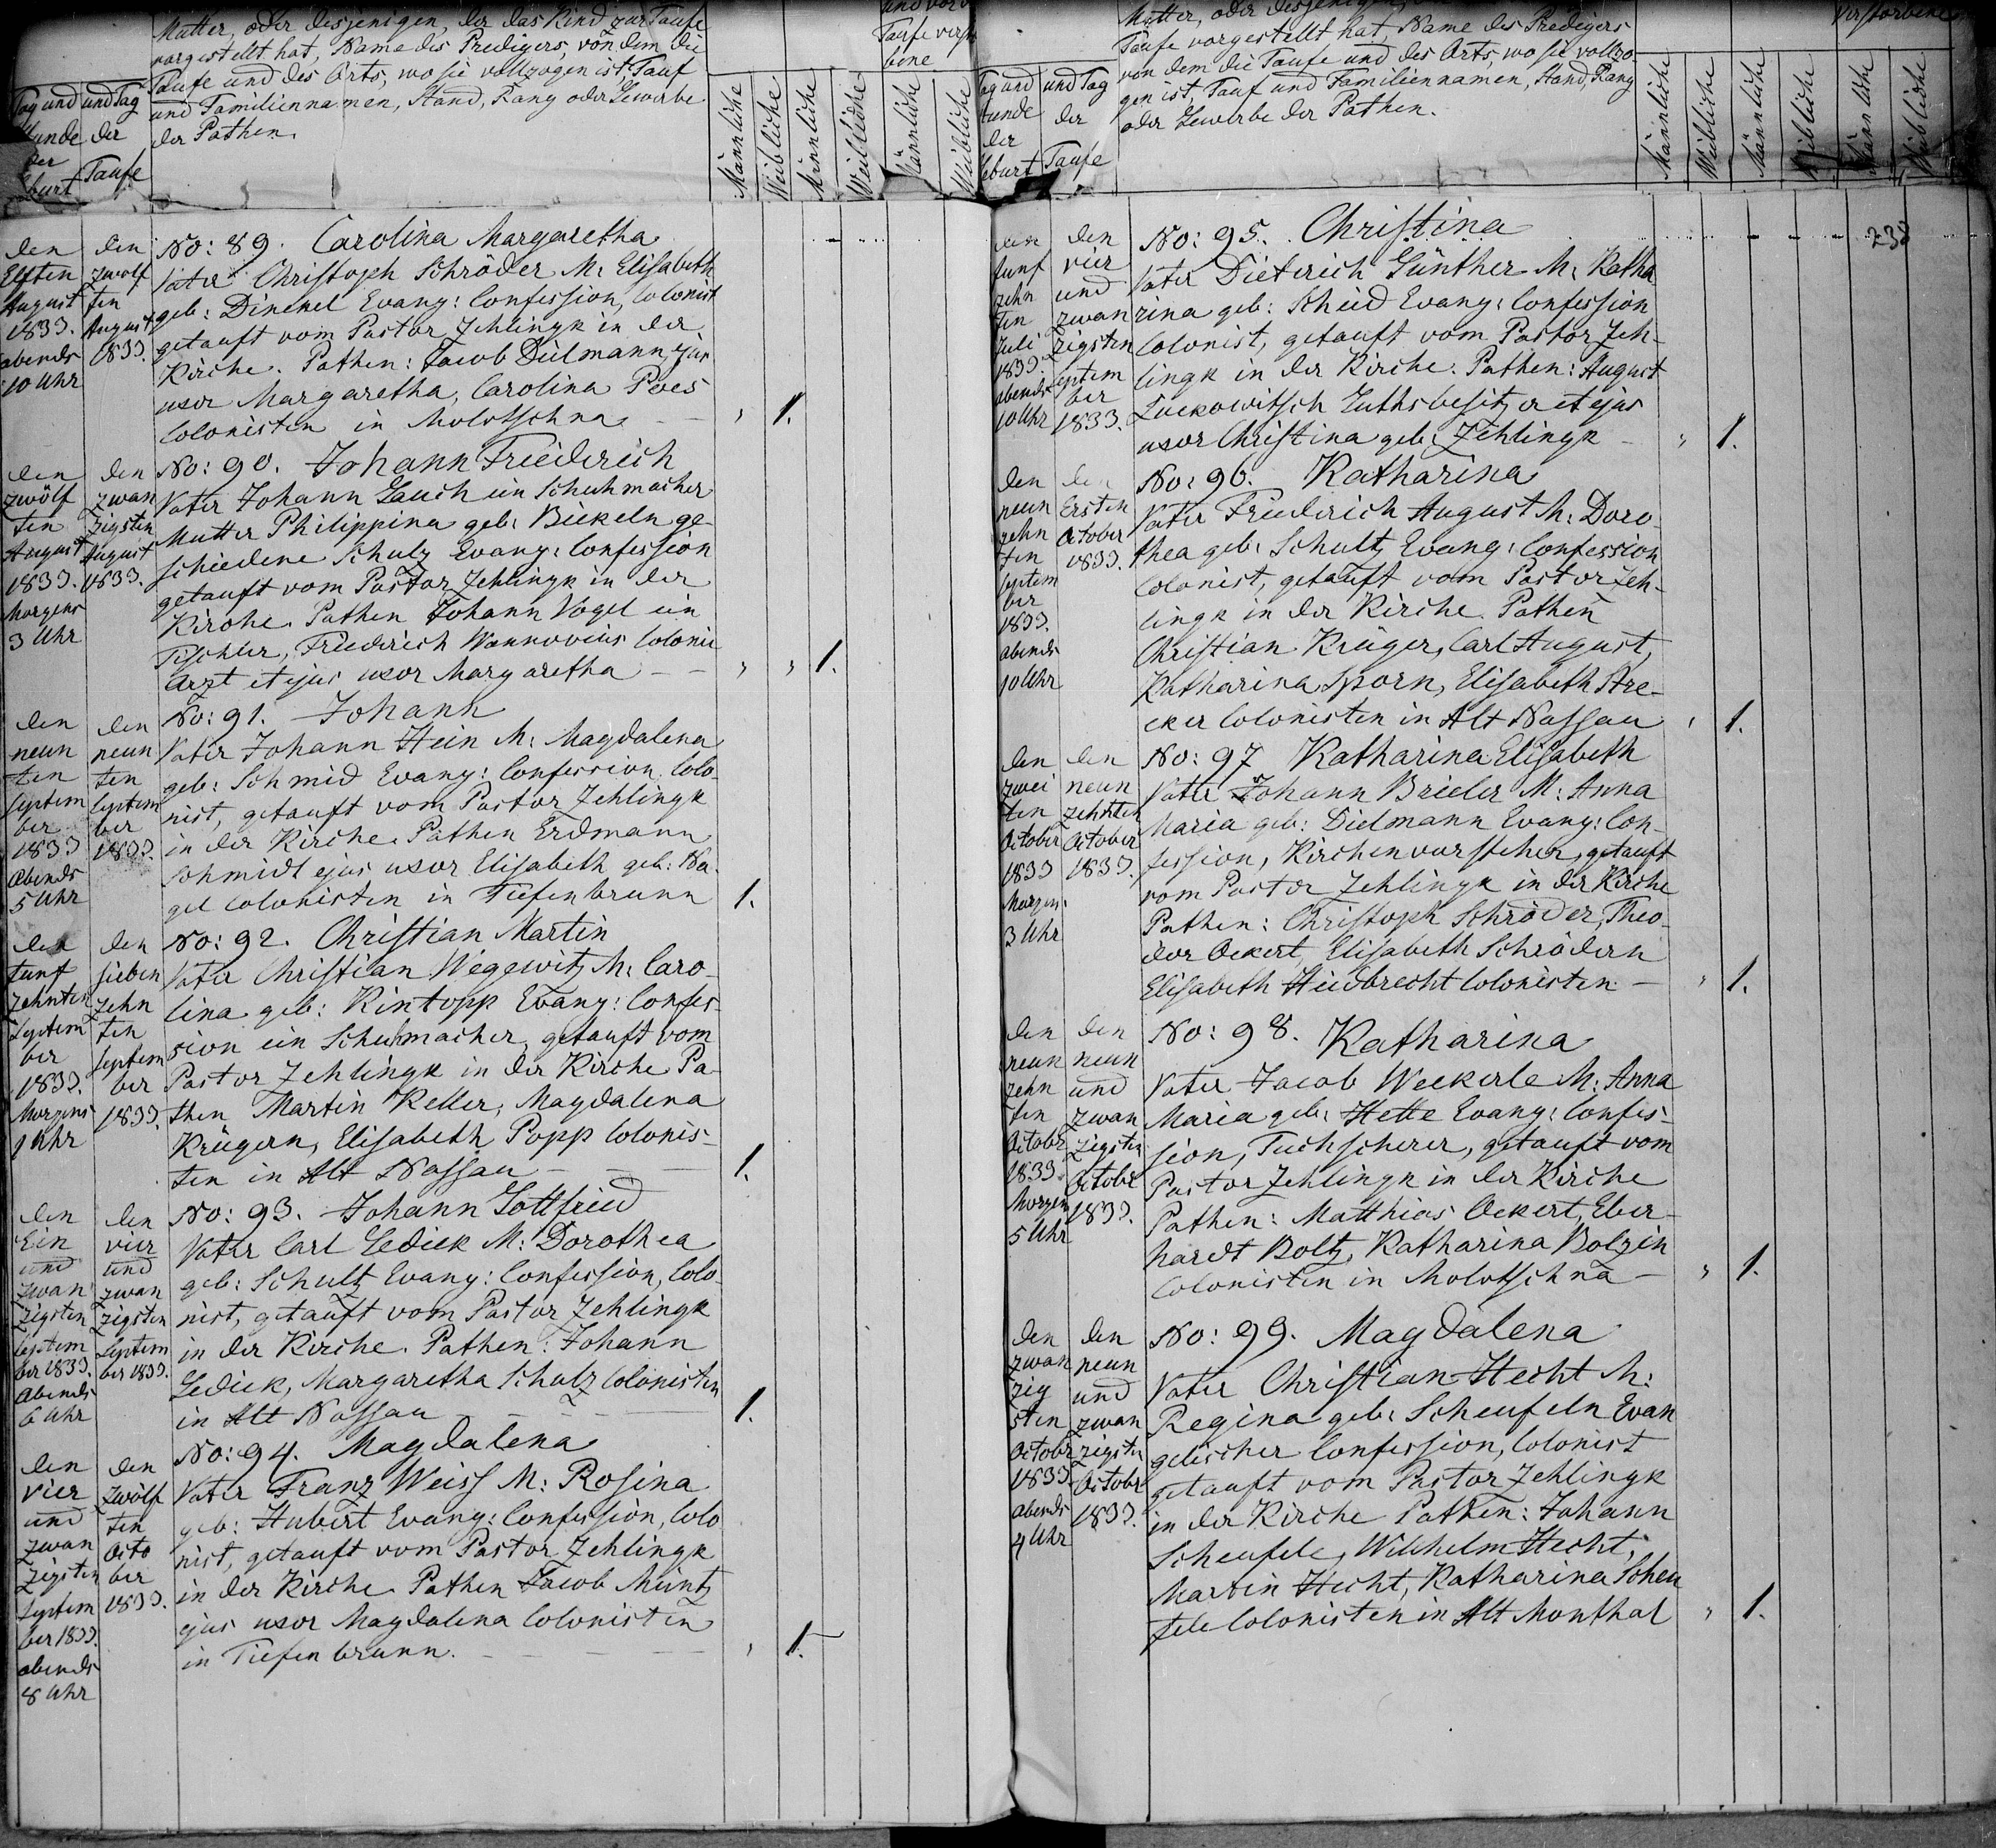 Mutter, oder desjenigen, der das Kind zur Taufe
vorgestellt hat, Name des Predigers, von dem die
Taufe und des Orts, wo sie vollzogen ist, Tauf
und Familiennamen, Stand, Rang oder Gewerbe
der Pathen.
Tag und
Stunde
der
Geburt
und Tag
der
Taufe
und vor d
Taufe verst
bene
Männliche
Weibliche
Männliche
Weibliche
Männliche
Weibliche
den
Elften
August
1833.
abends
10 Uhr
den
zwölf
ten
August
1833.
No: 89. Carolina Margaretha
Vater Christoph Schröder M: Elisabeth
geb: Dinckel Evang: Confession, Colonist
getauft vom Pastor Zehlingk in der
Kirche. Pathen: Jacob Dielmann, ejus
uxor Margaretha, Carolina Poes
Colonisten in Molotschna — " 1.
den
zwölf
ten
August
1833.
Morgens
3 Uhr
den
zwan
zigsten
August
1833.
No: 90. Johann Friederich
Vater Johann Gauch ein Schuhmacher
Mutter Philippina geb: Bickeln ge-
schiedene Schulz Evang: Confession
getauft vom Pastor Zehlingk in der
Kirche. Pathen Johann Vogel ein
Tischler, Friedrich Wannovius Colonie
Arzt et ejus uxor Margaretha — — " " 1.
den
neun
ten
Septem
ber
1833
Abends
5 Uhr
den
neun
ten
Septem
ber
1833.
No: 91. Johann
Vater Johann Hein M: Magdalena
geb: Schmid Evang: Confession Colo-
nist, getauft vom Pastor Zehlingk
in der Kirche. Pathen Erdmann
Schmidt ejus uxor Elisabeth geb: Na-
gel Colonisten in Tiefenbrunn 1.
den
funf
zehnten
Septem
ber
1833.
Morgens
1 Uhr
den
sieben
zehn
ten
Septem
ber
1833.
No: 92. Christian Martin
Vater Christian Wegewitz M: Caro-
lina geb: Kintopp Evang: Confes-
sion ein Schuhmacher, getauft vom
Pastor Zehlingk in der Kirche Pa-
then Martin Keller, Magdalena
Krügern, Elisabeth Popp Colonis-
ten in Alt Nassau — — — 1.
den
Ein
und
zwan
zigsten
Septem
ber 1833.
Abends
6 Uhr
den
vier
und
zwan
zigsten
Septem
ber 1833.
No: 93. Johann Gottfried
Vater Carl Gedick M: Dorothea
geb: Schultz Evang: Confession, Colo-
nist, getauft vom Pastor Zehlingk
in der Kirche. Pathen: Johann
Gedick, Margaretha Schulz Colonisten
in Alt Nassau — — — — 1.
den
vier
und
zwan
zigsten
Septem
ber 1833.
abends
8 Uhr
den
zwölf
ten
Octo
ber
1833.
No: 94. Magdalena
Vater Franz Weiss M: Rosina
geb: Hubert Evang: Confession, Colo
nist, getauft vom Pastor Zehlingk
in der Kirche. Pathen Jacob Müntz
ejus uxor Magdalena Colonisten
in Tiefenbrunn. — — — — " 1.
Mutter, oder desjenigen,
Taufe vorgestellt hat, Name des Predigers
von dem die Taufe und des Orts, wo sie vollzo-
gen ist, Tauf und Familiennamen, Stand, Rang
oder Gewerbe der Pathen.
Tag und
tunde
der
Geburt
und Tag
der
Taufe
Verstorbene
Männliche
Weibliche
Männliche
Weibliche
Männliche
Weibliche
238
den
funf
zehn
ten
Juli
1833.
abends
10 Uhr
den
vier
und
zwan
zigsten
Septem
ber
1833.
No: 95. Christina
Vater Dieterich Günther M: Katha
rina geb: Scheid Evang: Confession
Colonist, getauft vom Pastor Zeh-
lingk in der Kirche. Pathen: August
Luckowitsch Guthsbesitzer et ejus
uxor Christina geb: Zehlingk — " 1.
den
neun
zehn
ten
Septem
ber
1833.
abends
10 Uhr
den
Ersten
October
1833.
No: 96. Katharina
Vater Friederich August M: Doro-
thea geb: Schultz Evang: Confession
Colonist, getauft vom Pastor Zeh-
lingk in der Kirche. Pathen
Christian Krüger, Carl August,
Katharina Sporn, Elisabeth Stre-
cker Colonisten in Alt Nassau " 1.
den
zwei
ten
October
1833
Morgens
3 Uhr
den
neun
zehnten
October
1833.
No: 97 Katharina Elisabeth
Vater Johann Brieler M: Anna
Maria geb: Dielmann Evang: Con-
fession, Kirchenvorsteher, getauft
vom Pastor Zehlingk in der Kirche
Pathen: Christoph Schröder, Theo-
dor Oekert, Elisabeth Schrödern
Elisabeth Heidbrecht Colonisten — " 1.
den
neun
zehn
ten
Octobr
1833.
Morgen
5 Uhr
den
neun
und
zwan
zigsten
Octobr
1833.
No: 98. Katharina
Vater Jacob Weekerle M: Anna
Maria geb: Hette Evang: Confes-
sion, Tuchscherer, getauft vom
Pastor Zehlingk in der Kirche
Pathen: Matthias Oekert, Eber-
hardt Boltz, Katharina Bolzin
Colonisten in Molotschna — " 1.
den
zwan
zig
sten
Octobr
1833
abends
4 Uhr
den
neun
und
zwan
zigsten
Octobr
1833.
No: 99. Magdalena
Vater Christian Hecht M:
Regina geb: Scheufeln Evan
gelischer Confession, Colonist
getauft vom Pastor Zehlingk
in der Kirche Pathen: Johann
Scheufele, Wilhelm Hecht,
Martin Hecht, Katharina Scheu
fele Colonisten in Alt Monthal " 1.